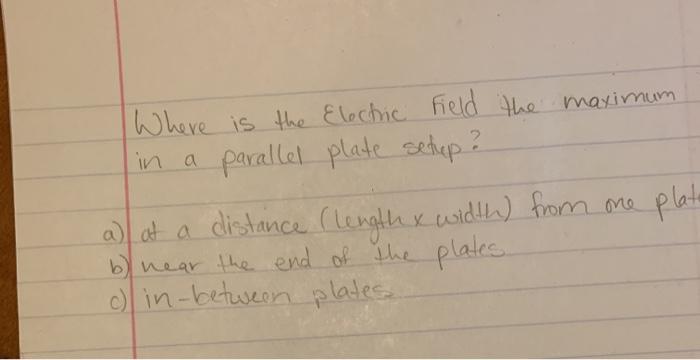 Where is the Electric Field the maximum
in a parallel plate setup?
a) at a distance (length x width) from one plate
b) near the end of the plates
c) in-between plates